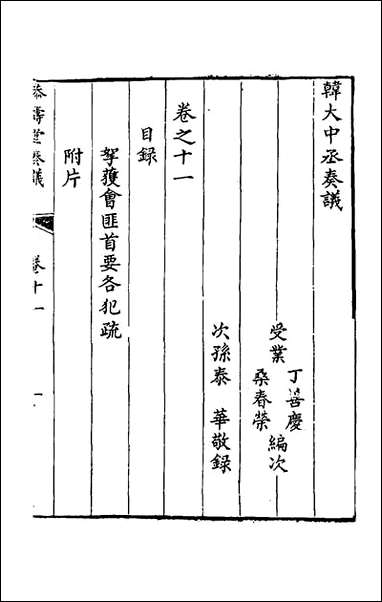 韓大中丞奏議
受業
丁善慶
桑春榮
編次
次孫泰 華敬録
卷之十一
目録
拏獲會匪首要各犯疏
附片
卷十一
一